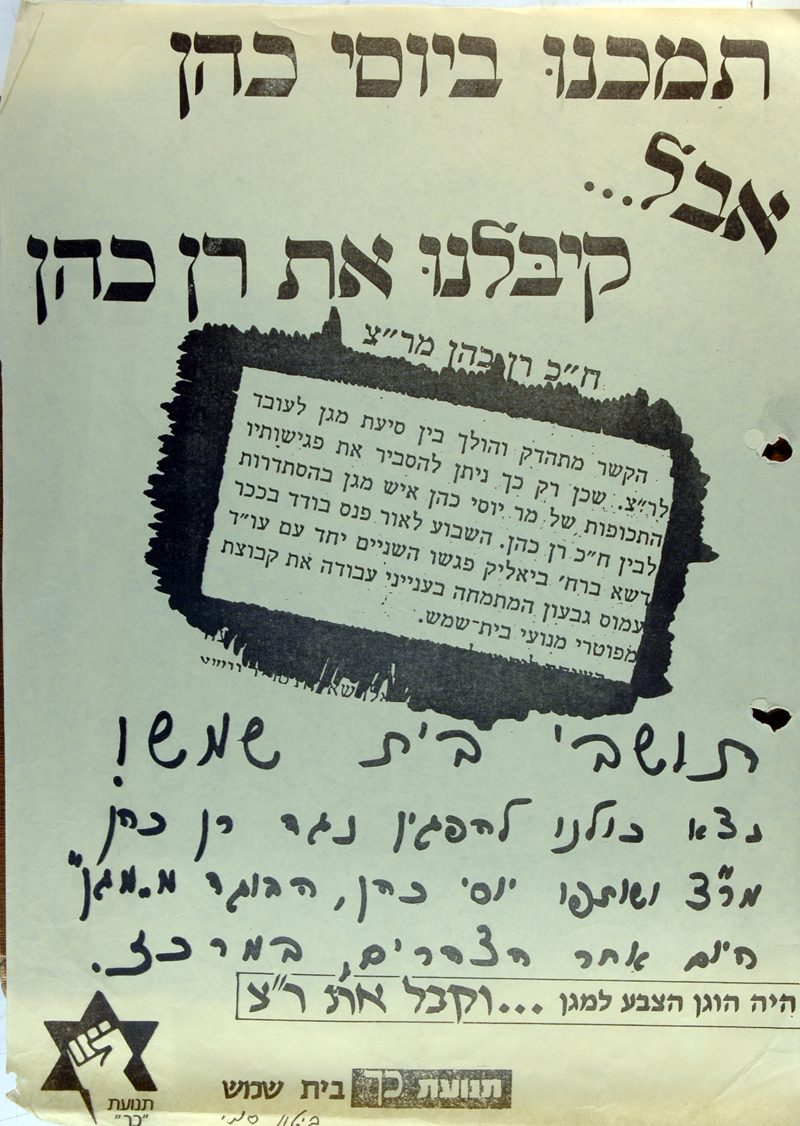 תמכנו ביוסי כהן
אבל...
קיבלנו את רן כהן
ח״כ רן כהן מר״צ
הקשר מתהדק והולך בין סיעת מגן לעובד
לר״צ. שכן רק כך ניתן להסביר את פגישותיו
התכופות של מר יוסי כהן איש מגן בהסתדרות
לבין ח״כ רן כהן. השבוע לאור פנס בודד בככר
דשא ברח׳ ביאליק פגשו השניים יחד עם עו״ד
עמוס גבעון המתמחה בענייני עבודה את קבוצת
מפוטרי מנועי בית־שמש.
תושבי בית שמש!
נצא כולנו להפגין נגד רן כהן
מר״צ ושותפו יוסי כהן, הבוגד מ״מגן״
היום אחר הצהרים, במרכז.
היה הוגן הצבע למגן ...וקבל את ר״צ
תנועת כך בית שמש
תנועת
״כך״